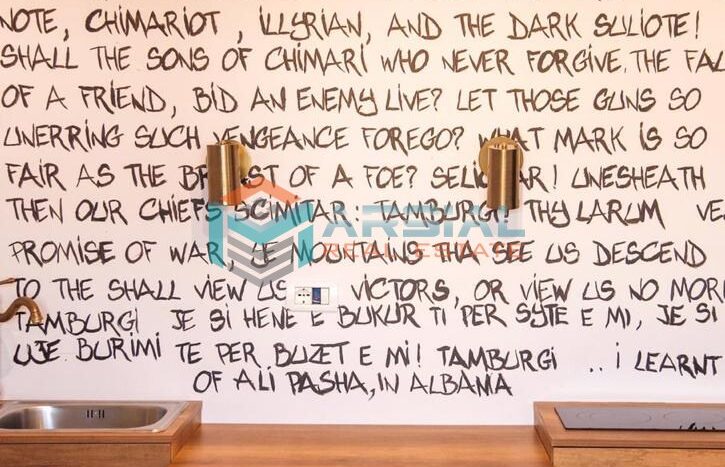 NOTE, CHIMARIOT, ILLYRIAN, AND THE DARK SULIOTE!
SHALL THE SONS OF CHIMARI WHO NEVER FORGIVE, THE FAL
OF A FRIEND, BID AN ENEMY LIVE? LET THOSE GUNS SO
UNERRING SUCH VENGEANCE FOREGO? WHAT MARK IS SO
FAIR AS THE BR ST OF A FOE? SELIC AR! UNESHEATH
THEN OUR CHIEFS SCIMITAR: TAMBURGI! THY LARUM VE
ARSIAL
REAL ESTATE
PROMISE OF WAR, JE MOUNTAINS THA SEE US DESCEND
TO THE SHALL VIEW US VICTORS, OR VIEW US NO MOR
TAMBURGI JE SI HENE E BUKUR TI PER SYTE E MI, JE SI
UJE BURIMI TE PER BUZET E MI! TAMBURGI .. I LEARNT
OF ALI PASHA, IN ALBAMA